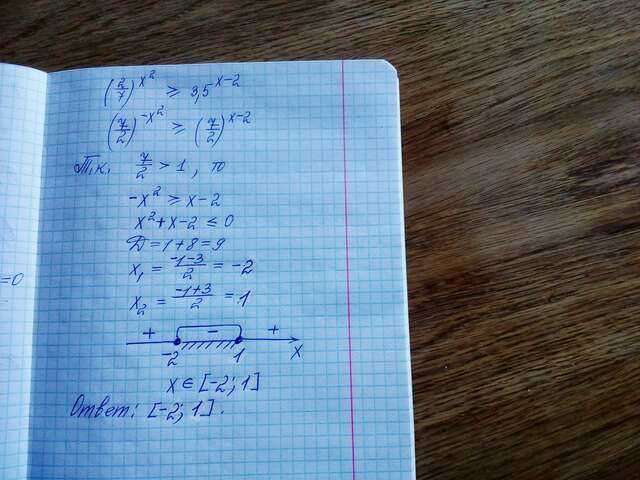 (2/7)^x² ≥ 3,5^x-2
(7/2)^-x² ≥ (7/2)^x-2
Т.к. 7/2 > 1, то
-x² ≥ x-2
x²+x-2 ≤ 0
Д=1+8=9
x₁ = -1-3/2 = -2
x₂ = -1+3/2 = 1
+ - +
-2 1 x
x ∈ [-2; 1]
=0
Ответ: [-2; 1].